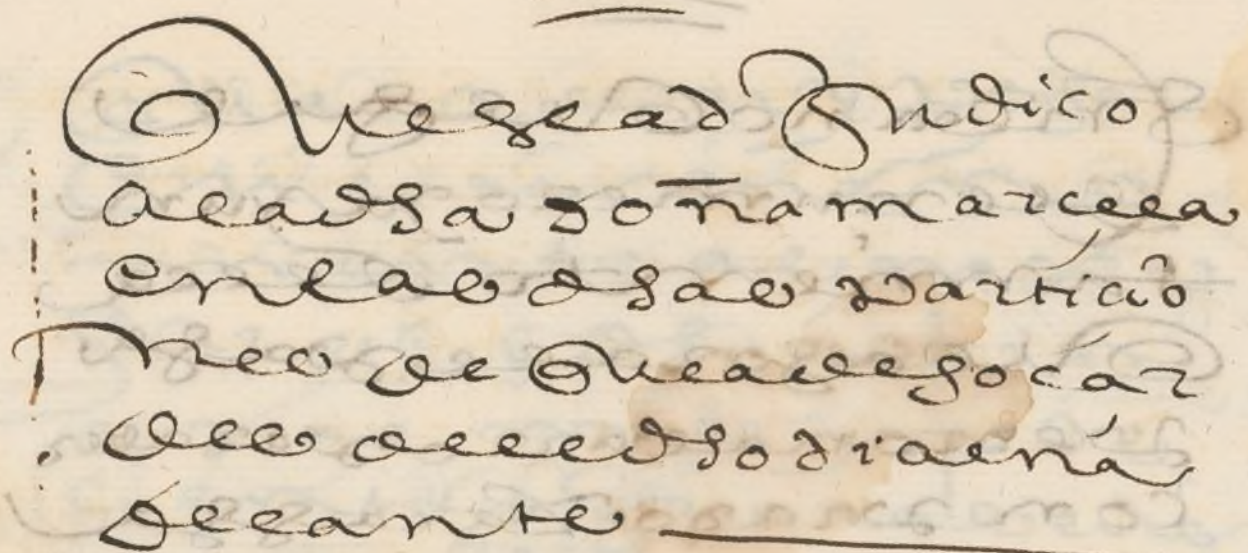 que se adJudico
aladha doña marcela
enlas dhas particio
nes de que a de goçar
des de el dho dia en a
delante